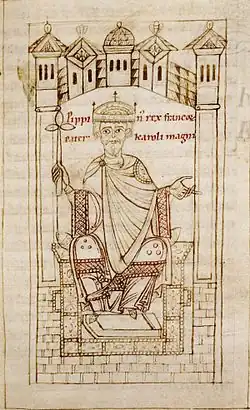 pippi n̄ rex francoꝝ
pater karoli magni